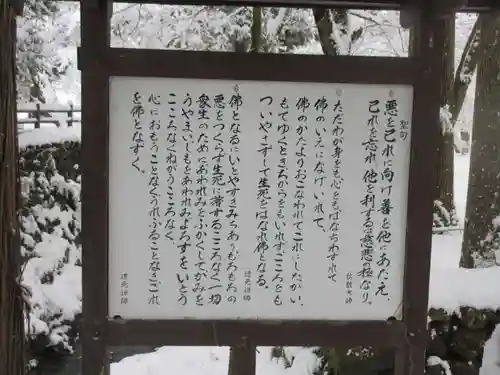 聖句
悪を己れに向け善を他にあたえ、
己れを忘れ他を利するは慈悲の極なり。
伝教大師
ただわが身をも心をもはなちわすれて
佛のいえになげいれて、
佛のかたよりおこなわれてこれにしたがい、
もてゆくときちからをもいれずこころをも
ついやさずして生死をはなれ佛となる。
道元禅師
佛となるにいとやすきみちありもろもろの
悪をつくらず生死に著するこころなく一切
衆生のためにあわれみをふかくしてかみを
うやまい しもをあわれみよろずをいとう
こころなくねがうこころなく、
心におもうことなくうれふることなきこれ
を佛となずく。
道元禅師